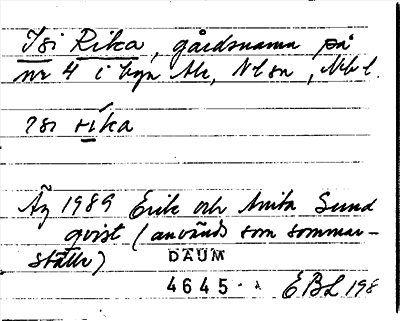 Isi Rika, gårdsnamn på
nr 4 i byn Ale, Nlsn, Nbl.
isi rika
Äg 1989 Erik och Anita Sund
qvist (används som sommar-
ställe)
DAUM
4645
EBL 198